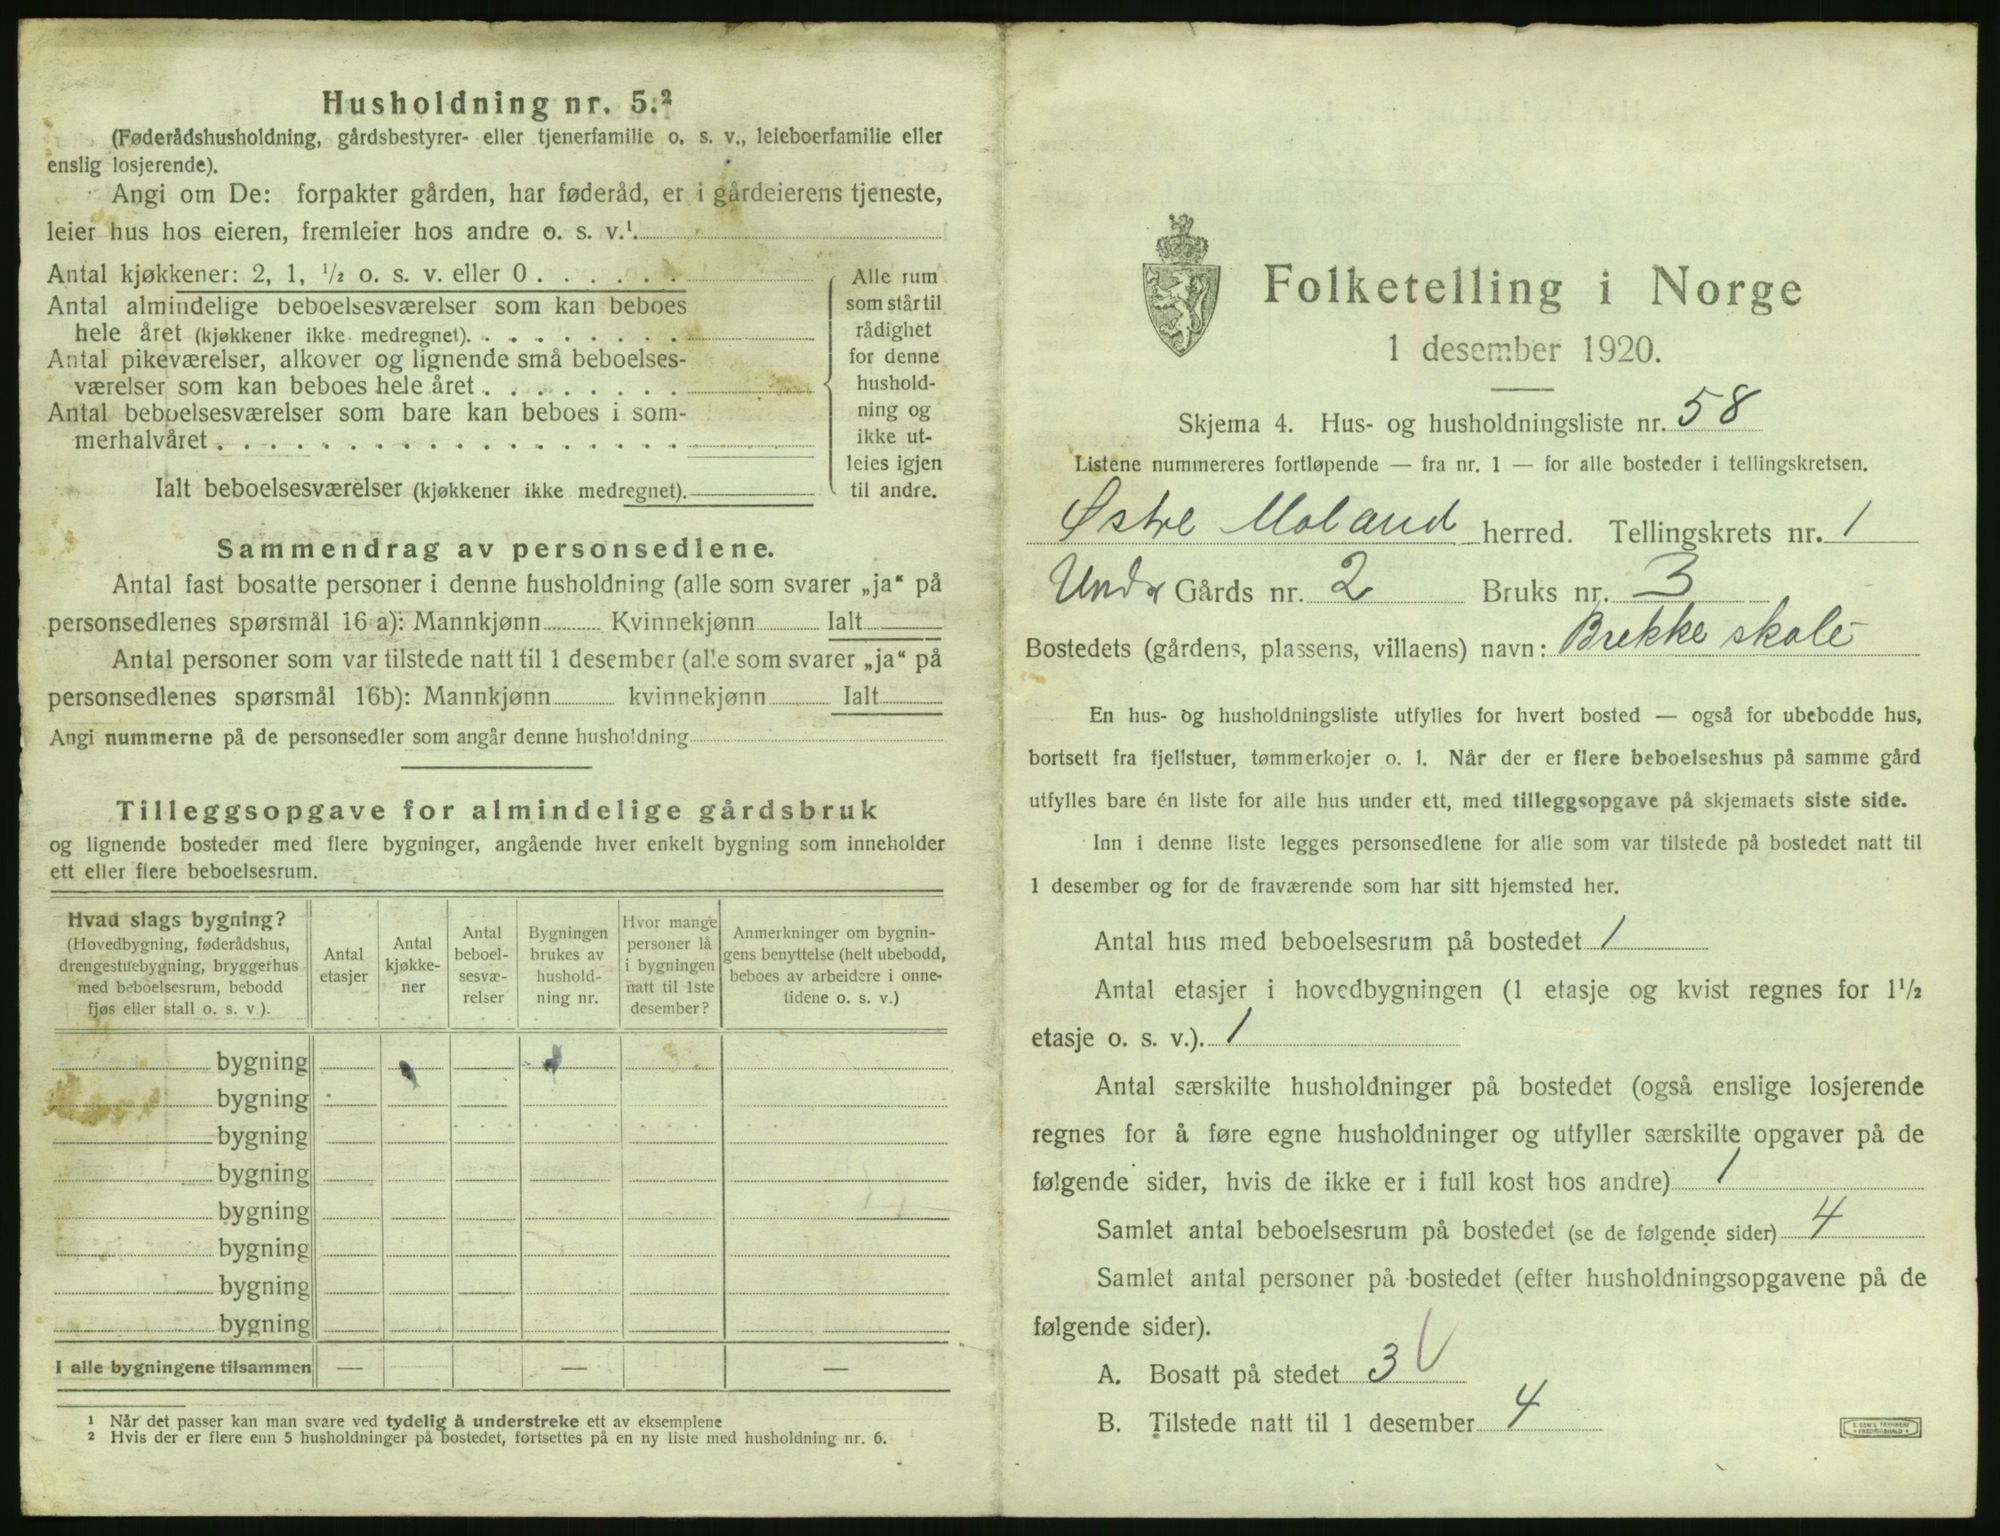 Husholdning nr. 5.²
(Føderådshusholdning, gårdsbestyrer- eller tjenerfamilie o. s. v., leieboerfamilie eller
enslig losjerende).
Angi om De: forpakter gården, har føderåd, er i gårdeierens tjeneste,
leier hus hos eieren, fremleier hos andre o. s. v.¹
Antal kjøkkener: 2, 1, ½ o. s. v. eller 0 . . . . . .
Antal almindelige beboelsesværelser som kan beboes
hele året (kjøkkener ikke medregnet). . . . . . . . .
Antal pikeværelser, alkover og lignende små beboelses-
værelser som kan beboes hele året . . . . . . . .
Antal beboelsesværelser som bare kan beboes i som-
merhalvåret . . . . . . . . . . . . . . . . . .
Ialt beboelsesværelser (kjøkkener ikke medregnet).
Alle rum
som står til
rådighet
for denne
hushold-
ning og
ikke ut-
leies igjen
til andre.
Sammendrag av personsedlene.
Antal fast bosatte personer i denne husholdning (alle som svarer „ja“ på
personsedlenes spørsmål 16 a): Mannkjønn Kvinnekjønn Ialt
Antal personer som var tilstede natt til 1 desember (alle som svarer „ja“ på
personsedlenes spørsmål 16b): Mannkjønn kvinnekjønn Ialt
Angi nummerne på de personsedler som angår denne husholdning
Tilleggsopgave for almindelige gårdsbruk
og lignende bosteder med flere bygninger, angående hver enkelt bygning som inneholder
ett eller flere beboelsesrum.
Hvad slags bygning?
(Hovedbygning, føderådshus,
drengestuebygning, bryggerhus
med beboelsesrum, bebodd
fjøs eller stall o. s. v ).
Antal
etasjer
Antal
kjøkke-
ner
Antal
beboel-
sesvæ-
relser
Bygningen
brukes av
hushold-
ning nr.
Hvor mange
personer lå
i bygningen
natt til 1ste
desember?
Anmerkninger om bygnin-
gens benyttelse (helt ubebodd,
beboes av arbeidere i onne-
tidene o. s. v.)
bygning
bygning
bygning
bygning
bygning
bygning
bygning
bygning
I alle bygningene tilsammen — — —
¹ Når det passer kan man svare ved tydelig å understreke ett av eksemplene
² Hvis der er flere enn 5 husholdninger på bostedet, fortsettes på en ny liste med husholdning nr. 6.
Folketelling i Norge
1 desember 1920.
Skjema 4. Hus- og husholdningsliste nr. 58
Listene nummereres fortløpende — fra nr. 1 — for alle bosteder i tellingskretsen.
Østre Moland herred. Tellingskrets nr. 1
Undr Gårds nr. 2 Bruks nr. 3
Bostedets (gårdens, plassens, villaens) navn: Brekke skole
En hus- og husholdningsliste utfylles for hvert bosted — også for ubebodde hus,
bortsett fra fjellstuer, tømmerkojer o. l. Når der er flere beboelseshus på samme gård
utfylles bare én liste for alle hus under ett, med tilleggsopgave på skjemaets siste side.
Inn i denne liste legges personsedlene for alle som var tilstede på bostedet natt til
1 desember og for de fraværende som har sitt hjemsted her.
Antal hus med beboelsesrum på bostedet 1
Antal etasjer i hovedbygningen (1 etasje og kvist regnes for 1½
etasje o. s. v.). 1
Antal særskilte husholdninger på bostedet (også enslige losjerende
regnes for å føre egne husholdninger og utfyller særskilte opgaver på de
følgende sider, hvis de ikke er i full kost hos andre) 1
Samlet antal beboelsesrum på bostedet (se de følgende sider) 4
Samlet antal personer på bostedet (efter husholdningsopgavene på de
følgende sider).
A. Bosatt på stedet 3
B. Tilstede natt til 1 desember 4